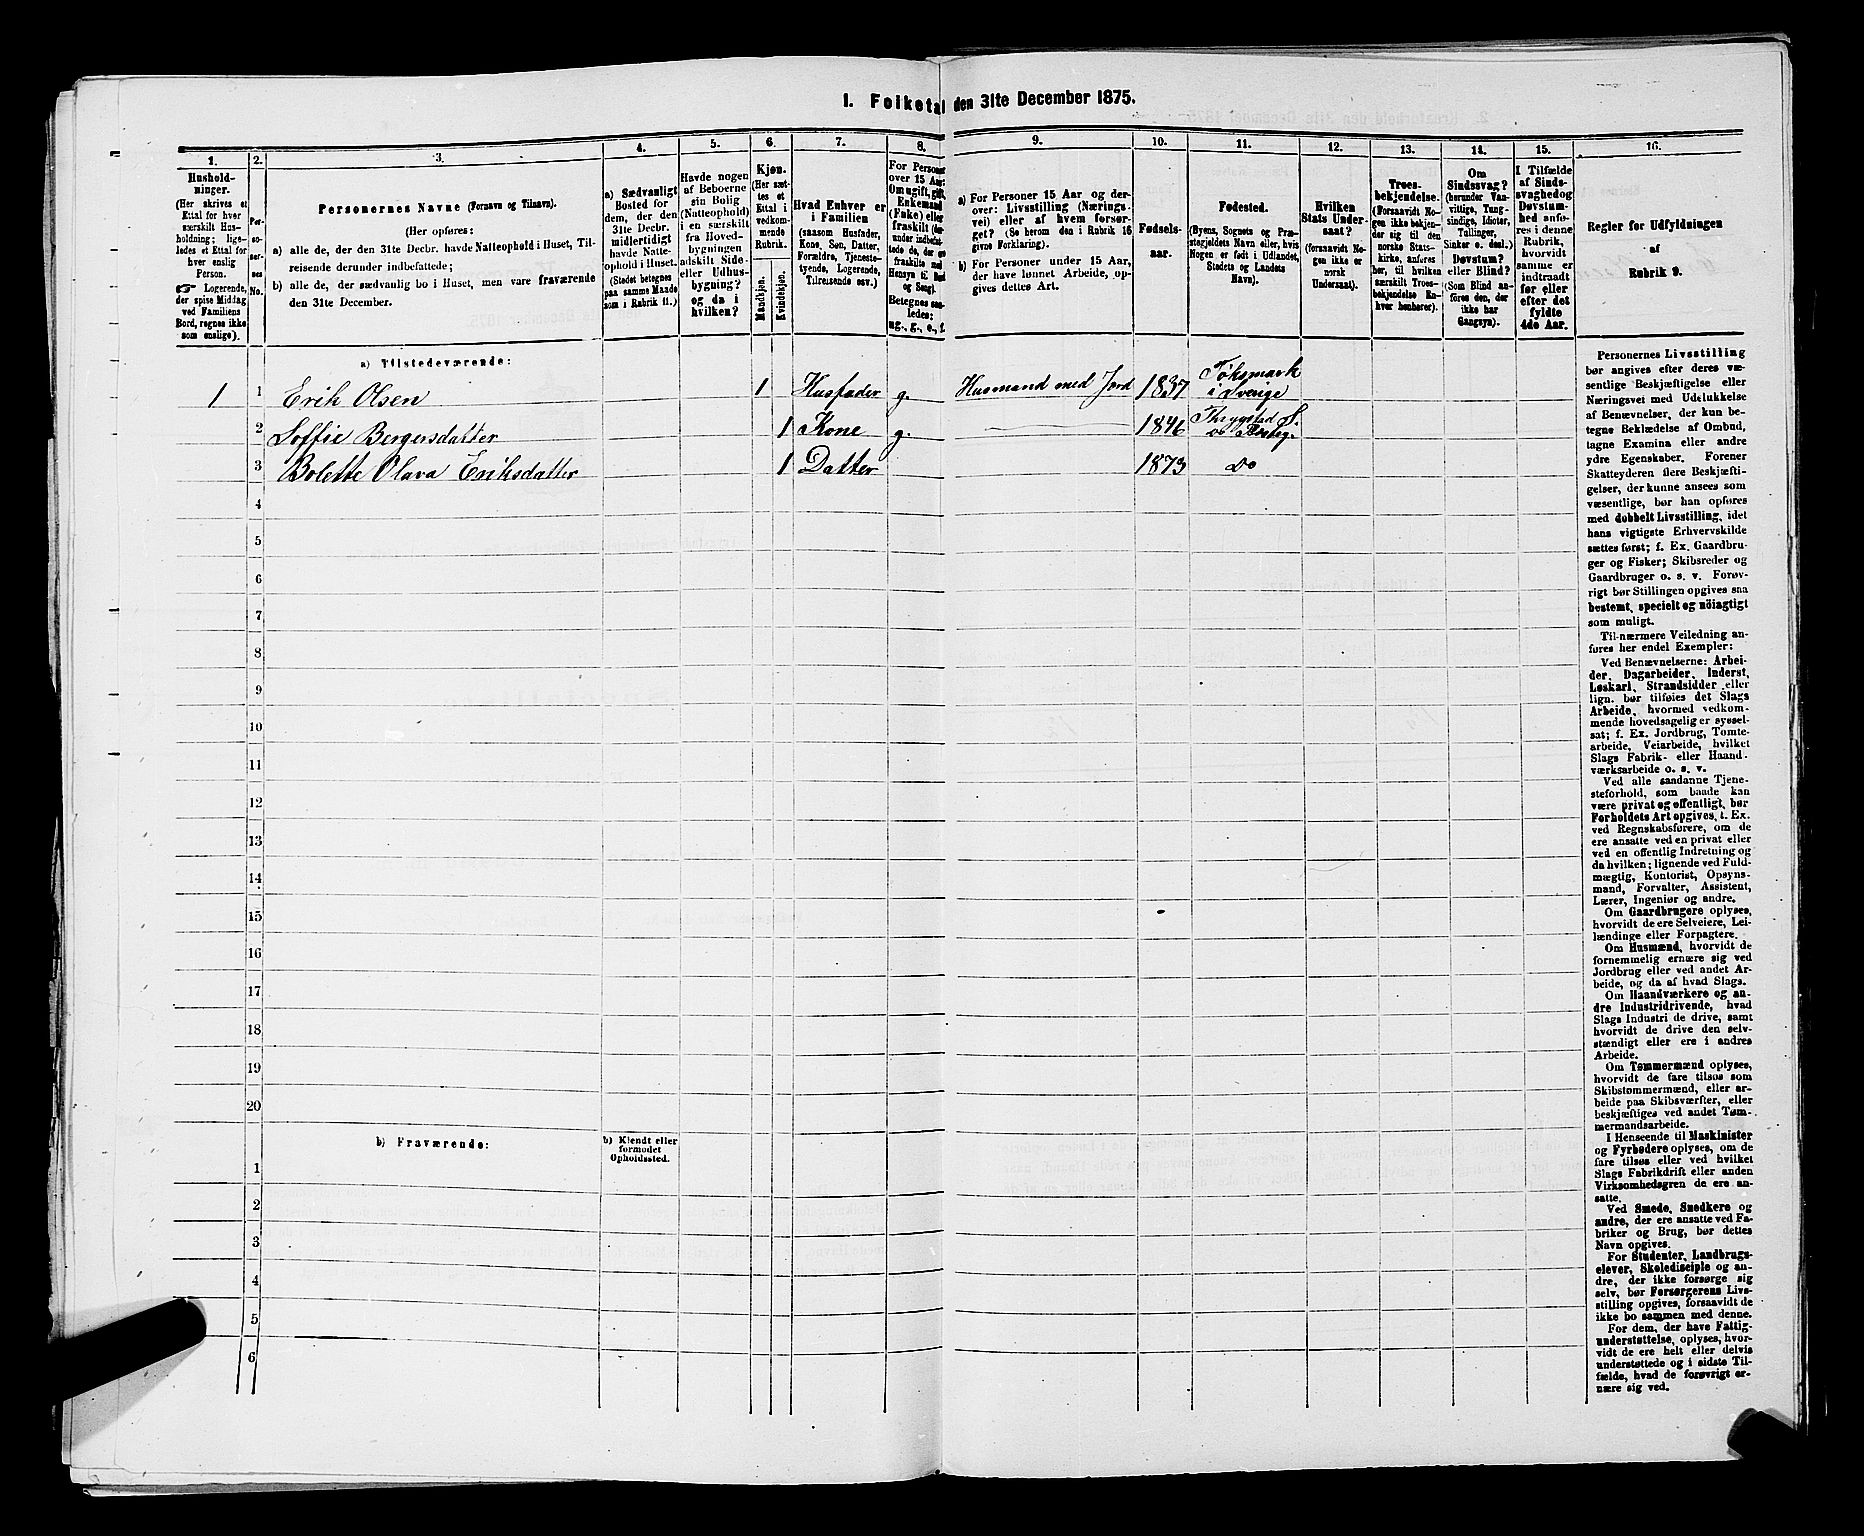 1. Folketal den 31te December 1875.
1.
Hushold-
ninger.
(Her skrives et
Ettal for hver
særskilt Hus-
holdning; lige-
ledes et Ettal for
hver enslig
Person.
☛ Logerende,
der spise Middag
ved Familiens
Bord, regnes ikke
som enslige).
2.
Per-
so-
ner-
nes
No.
3.
Personernes Navne (Fornavn og Tilnavn).
(Her opføres:
a) alle de, der den 31te Decbr. havde Natteophold i Huset, Til-
reisende derunder indbefattede;
b) alle de, der sædvanlig bo i Huset, men vare fraværende
den 31te December.
4.
a) Sædvanligt
Bosted for
dem, der den
31te Decbr.
midlertidigt
havde Natte-
ophold i Huset.
(Stedet betegnes
paa samme Maade
som i Rubrik 11.)
5.
Havde nogen
af Beboerne
sin Bolig
(Natteophold)
i en særskilt
fra Hoved-
bygningen
adskilt Side-
eller Udhus-
bygning?
og da i
hvilken?
6.
Kjøn.
(Her sæt-
tes et
Ettal i
vedkom-
mende
Rubrik.
Mandkjøn.
Kvindekjøn.
7.
Hvad Enhver er
i Familien
(saasom Husfader,
Kone, Søn, Datter,
Forældre, Tjeneste-
tyende, Logerende,
Tilreisende osv.)
8.
For Personer
over 15 Aar:
Om ugift, gift,
Enkemand
(Enke) eller
fraskilt
Betegnes saa-
ledes:
ug., g., e., f.
9.
a) For Personer 15 Aar og der-
over: Livsstilling (Nærings-
vei) eller af hvem forsør-
get? (Se herom den i Rubrik 16
givne Forklaring).
b) For Personer under 15 Aar,
der have lønnet Arbeide, op-
gives dettes Art.
10.
Fødsels-
aar.
11.
Fødested.
(Byens, Sognets og Præ-
stegjeldets Navn eller, hvis
Nogen er født i Udlandet,
Stedets og Landets
Navn).
12.
Hvilken
Stats Under-
saat?
(forsaavidt No-
gen ikke er
norsk
Undersaat).
13.
Troes-
bekjendelse.
(Forsaavidt No-
gen ikke bekjen-
der sig til den
norske Stats-
kirke, anføres
her, til hvilken
særskilt Troes-
bekjendelse En-
hver henhører).
14.
Om
Sindssvag?
(herunder Van-
vittige, Tung-
sindige, Idioter,
Tullinger,
Sinker o. desl.)
Døvstum?
eller Blind?
(Som Blind an-
føres den, der
ikke har
Gangsyn).
15.
I Tilfælde
af Sinds-
svaghed og
Døvstum-
hed anfø-
res i denne
Rubrik,
hvorvidt
samme er
indtraadt
før eller
efter det
fyldte
4de Aar.
16.
Regler for Udfyldningen
af
Rubrik 9.
a) Tilstedeværende:
1 1 Erik Olsen 1 Husfader g. Husmand med Jord 1837 Töksmark
i Sverige
2 Soffie Bergersdatter 1 Kone g. — 1846 Thrygstad S.
do Præsteg.
3 Bolette Olava Eriksdatter 1 Datter 1873 do
4
5
6
7
8
9
10
11
12
13
14
15
16
17
18
19
20
b) Fraværende:
b) Kjendt eller
formodet
Opholdssted.
1
2
3
4
5
6
Personernes Livsstilling
bør angives efter deres væ-
sentlige Beskjæftigelse eller
Næringsvei med Udelukkelse
af Benævnelser, der kun be-
tegne Beklædelse af Ombud,
tagne Examina eller andre
ydre Egenskaber. Forener
Skatteyderen flere Beskjæfti-
gelser, der kunne ansees som
væsentlige, bør han opføres
med dobbelt Livsstilling, idet
hans vigtigste Erhvervskilde
sættes først; f. Ex. Gaardbru-
ger og Fisker; Skibsreder og
Gaardbruger o. s. v. Forøv-
rigt bør Stillingen opgives saa
bestemt, specielt og nöiagtigt
som muligt.
Til nærmere Veiledning an-
føres her endel Exempler:
Ved Benævnelserne: Arbei-
der, Dagarbeider, Inderst,
Løskarl, Strandsidder eller
lign. bør tilføies det Slags
Arbeide, hvormed vedkom-
mende hovedsagelig er syssel-
sat; f. Ex. Jordbrug, Tomte-
arbeide, Veiarbeide, hvilket
Slags Fabrik- eller Haand-
værksarbeide o. s. v.
Ved alle saadanne Tjene-
steforhold, som baade kan
være privat og offentligt, bør
Forholdets Art opgives, t. Ex.
ved Regnskabsførere, om de
ere ansatte ved en privat eller
ved en offentlig Indretning og
da hvilken; lignende ved Fuld-
mægtig, Kontorist, Opsyns-
mand, Forvalter, Assistent,
Lærer, Ingeniør og andre.
Om Gaardbrugere oplyses,
hvorvidt de ere Selveiere, Lei-
lændinge eller Forpagtere.
Om Husmænd, hvorvidt de
fornemmelig ernære sig ved
Jordbrug eller ved andet Ar-
beide, og da af hvad Slags.
Om Haandværkere og an-
dre Industridrivende, hvad
Slags Industri de drive, samt
hvorvidt de drive den selv-
stændigt eller ere i andres
Arbeide.
Om Tømmermænd oplyses,
hvorvidt de fare tilsøs som
Skibstømmermænd, eller ar-
beide paa Skibsværfter, eller
beskjæftiges ved andet Tøm-
mermandsarbeide.
I Henseende til Maskinister
og Fyrbødere oplyses, om de
fare tilsøs eller ved hvilket
Slags Fabrikdrift eller anden
Virksomhedsgren de ere an-
satte.
Ved Smede, Snedkere og
andre, der ere ansatte ved Fa-
briker og Brug, bør dettes
Navn opgives.
For Studenter, Landbrugs-
elever, Skoledisciple og an-
dre, der ikke forsørge sig
selv, bør Forsørgerens Livs-
stilling opgives, forsaavidt de
ikke bo sammen med denne.
For dem, der have Fattig-
understøttelse, oplyses, hvor-
vidt de ere helt eller delvis
understøttede og i sidste Til-
fælde, hvad de forøvrigt er-
nære sig ved.